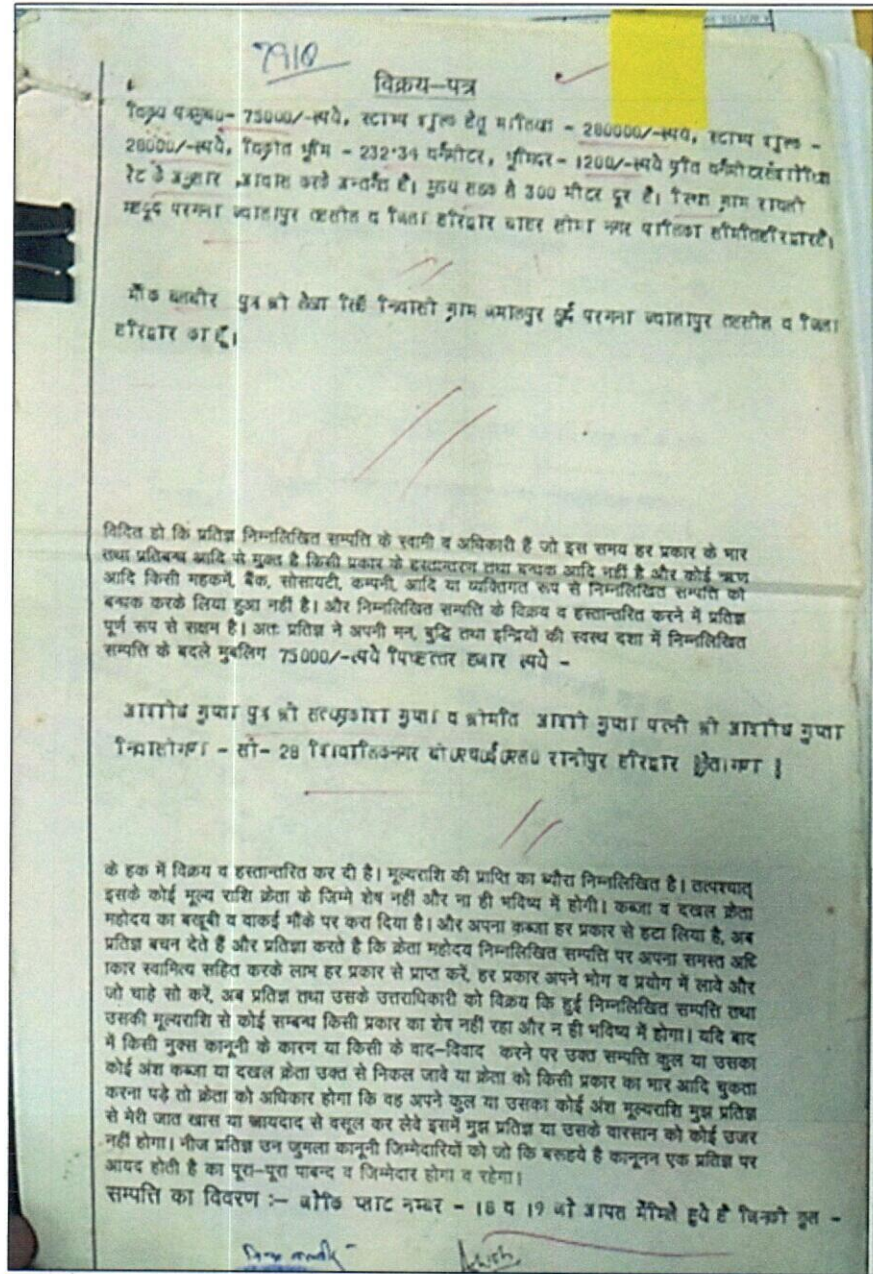 7910
विक्रय-पत्र
विक्रय पत्रमूल्य- 75000/-रूपये, स्टाम्प शुल्क हेतू मालियत - 280000/-रूपये, स्टाम्प शुल्क -
28000/-रूपये, विक्रीत भूमि - 232.34 वर्गमीटर, भूमिदर- 1200/-रूपये प्रति वर्गमीटर
रेट के अनुसार आवास करके अन्तर्गत है। मुख्य सडक से 300 मीटर दूर है। स्थित ग्राम रावली
महदूद परगना ज्वालापुर तहसील व जिला हरिद्वार बाहर सीमा नगर पालिका सीमित हरिद्वार है।
मैंकि बलबीर पुत्र श्री सिंह निवासी ग्राम जमालपुर खुर्द परगना ज्वालापुर तहसील व जिला
हरिद्वार का हूँ।
विदित हो कि प्रतिज्ञ निम्नलिखित सम्पत्ति के स्वामी व अधिकारी हैं जो इस समय हर प्रकार के भार
तथा प्रतिबन्ध आदि से मुक्त है किसी प्रकार के हस्तान्तरण तथा बन्धक आदि नहीं है और कोई ऋण
आदि किसी महकमें, बैंक, सोसायटी, कम्पनी, आदि या व्यक्तिगत रूप से निम्नलिखित सम्पत्ति को
बन्धक करके लिया हुआ नहीं है। और निम्नलिखित सम्पत्ति के विक्रय व हस्तान्तरित करने में प्रतिज्ञ
पूर्ण रूप से सक्षम है। अतः प्रतिज्ञ ने अपनी मन, बुद्धि तथा इन्द्रियों की स्वस्थ दशा में निम्नलिखित
सम्पत्ति के बदले मुबलिग 75000/-रूपये पिच्हत्तर हजार रूपये -
आशीष गुप्ता पुत्र श्री सत्यप्रकाश गुप्ता व श्रीमति गुप्ता पत्नी श्री आशीष गुप्ता
निवासीगण - सी- 28 शिवालिकनगर बी०एच०ई०एल० रानीपुर हरिद्वार क्रेतागण
के हक में विक्रय व हस्तान्तरित कर दी है। मूल्यराशि की प्राप्ति का ब्यौरा निम्नलिखित है। तत्पश्चात्
इसके कोई मूल्य राशि क्रेता के जिम्मे शेष नहीं और ना ही भविष्य में होगी। कब्जा व दखल क्रेता
महोदय का बखूबी व वाकई मौके पर करा दिया है। और अपना कब्जा हर प्रकार से हटा लिया है, अब
प्रतिज्ञ बचन देते हैं और प्रतिज्ञा करते है कि क्रेता महोदय निम्नलिखित सम्पत्ति पर अपना समस्त अधि
कार स्वामित्य सहित करके लाभ हर प्रकार से प्राप्त करें, हर प्रकार अपने भोग व प्रयोग में लावे और
जो चाहे सो करें, अब प्रतिज्ञ तथा उसके उत्तराधिकारी को विक्रय कि हुई निम्नलिखित सम्पत्ति तथा
उसकी मूल्यराशि से कोई सम्बन्ध किसी प्रकार का शेष नहीं रहा और न ही भविष्य में होगा। यदि बाद
में किसी नुक्स कानूनी के कारण या किसी के वाद-विवाद करने पर उक्त सम्पत्ति कुल या उसका
कोई अंश कब्जा या दखल क्रेता उक्त से निकल जावे या क्रेता को किसी प्रकार का भार आदि चुकता
करना पड़े तो क्रेता को अधिकार होगा कि वह अपने कुल या उसका कोई अंश मूल्यराशि मुझ प्रतिज्ञ
से मेरी जात खास या जायदाद से वसूल कर लेवे इसमें मुझ प्रतिज्ञ या उसके वारसान को कोई उजर
नहीं होगा। नीज प्रतिज्ञ उन जुमला कानूनी जिम्मेदारियों को जो कि बरूहये है कानूनन एक प्रतिज्ञ पर
आयद होती है का पूरा-पूरा पाबन्द व जिम्मेदार होगा व रहेगा।
सम्पत्ति का विवरण :- जोकि प्लाट नम्बर - 18 व 19 जो आपस में मिले हुये है जिनकी कुल -
Ashish